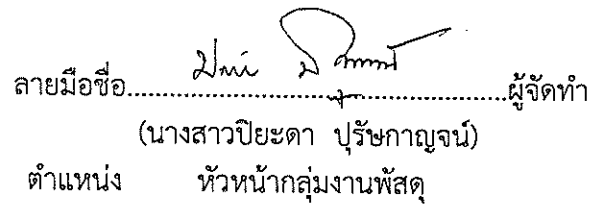 ลายมือชื่อ....................................................ผู้จัดทำ
(นางสาวปิยะดา ปุรัษกาญจน์)
ตำแหน่ง หัวหน้ากลุ่มงานพัสดุ